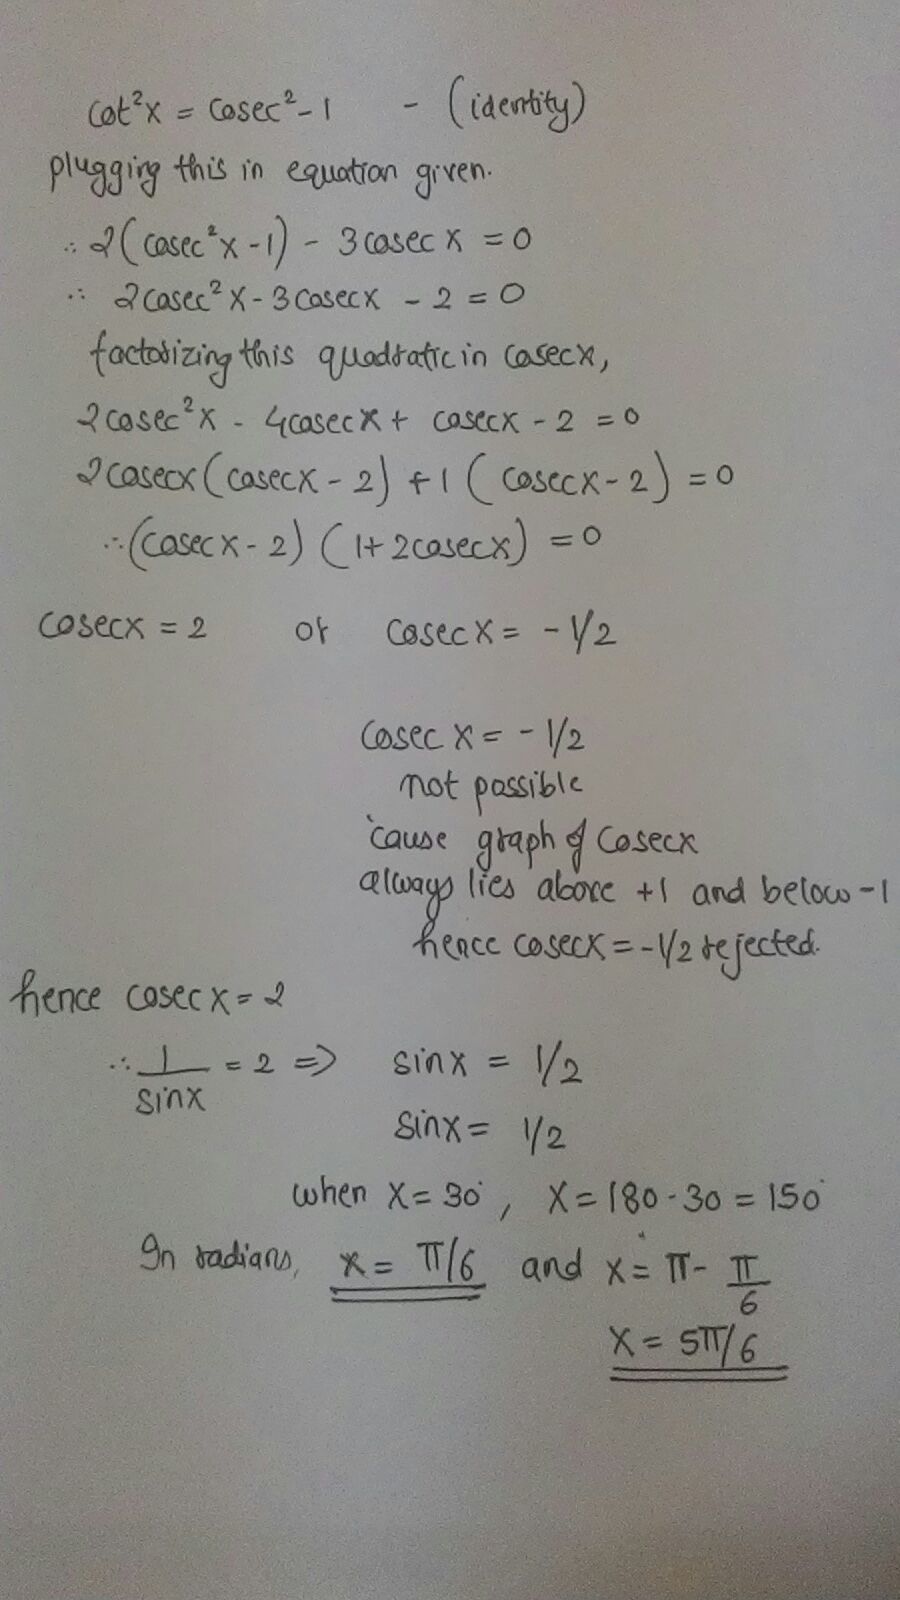 cot²x = cosec² - 1 - (identity)
plugging this in equation given.
∴ 2(cosec²x - 1) - 3cosec x = 0
∴ 2cosec²x - 3cosecx - 2 = 0
factorizing this quadratic in cosecx,
2cosec²x - 4cosecx + cosecx - 2 = 0
2cosecx(cosecx - 2) + 1(cosecx - 2) = 0
∴ (cosecx - 2) (1 + 2cosecx) = 0
cosecx = 2 or cosecx = -1/2
cosec x = -1/2
not possible
'cause graph of cosecx
always lies above +1 and below -1
hence cosecx = -1/2 rejected.
hence cosecx = 2
∴ 1/sinx = 2 => sinx = 1/2
sinx = 1/2
when x = 30°, x = 180 - 30 = 150°
In radians, x = π/6 and x = π - π/6
x = 5π/6